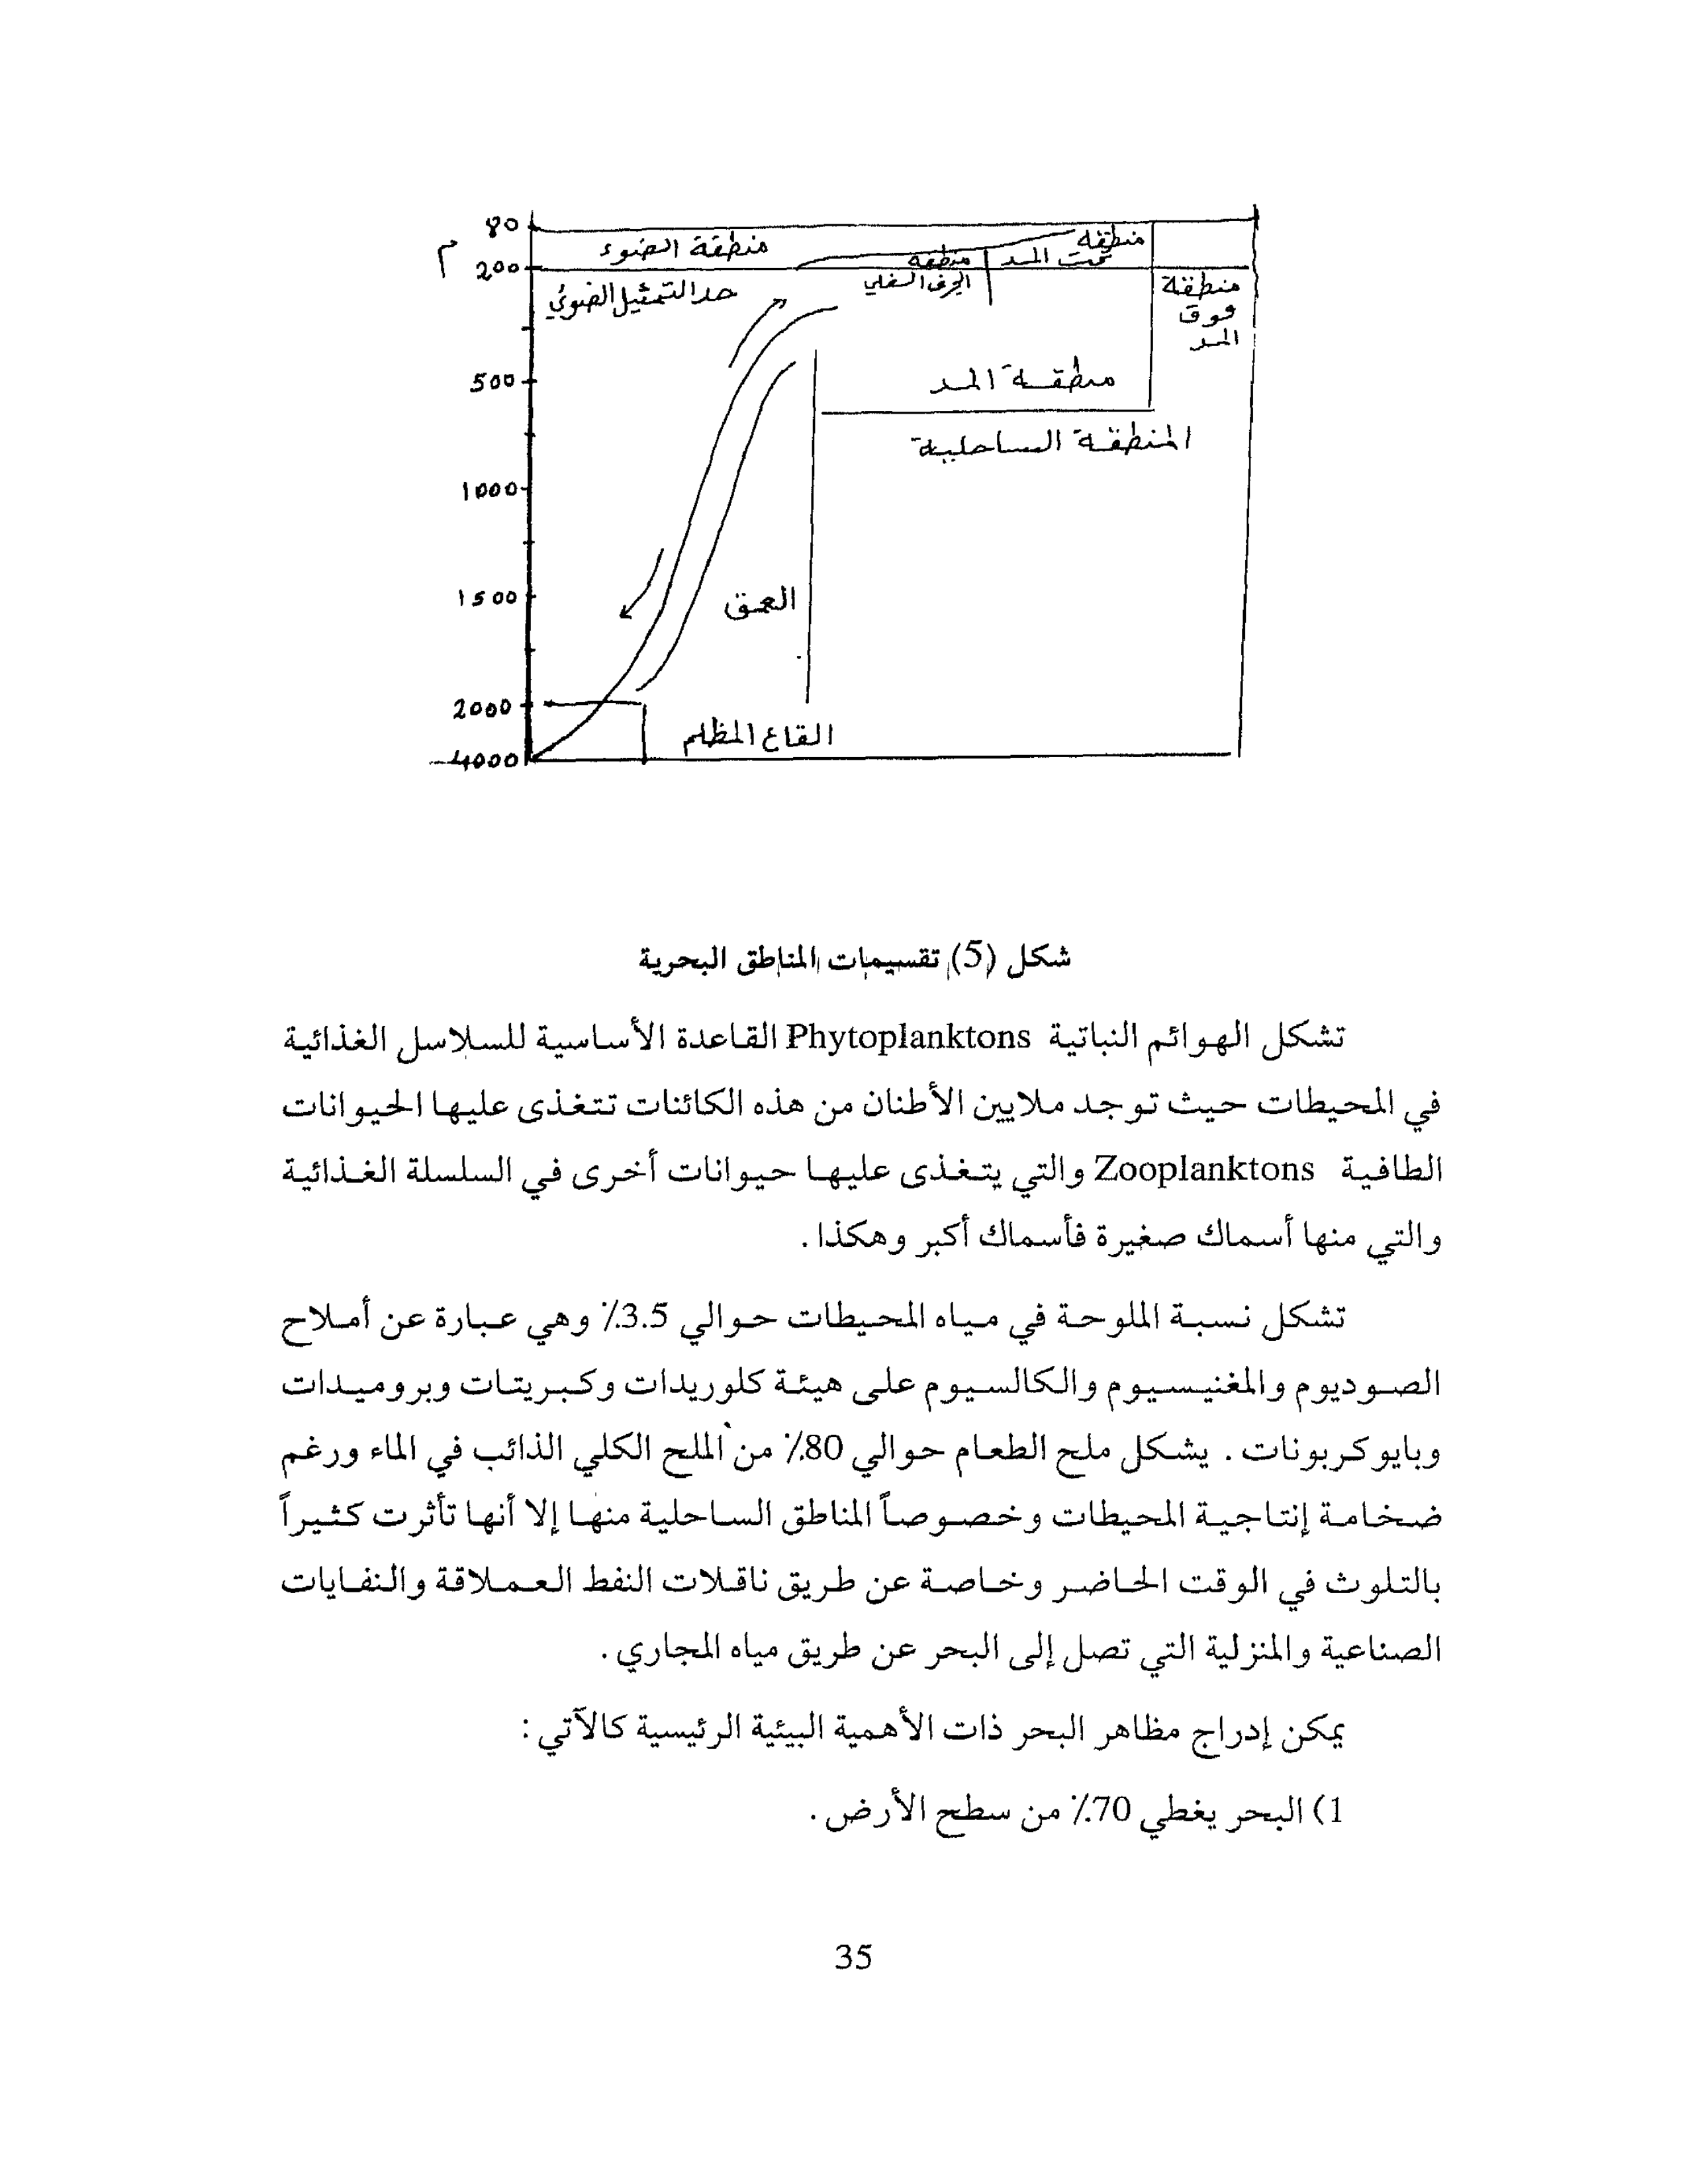 80
م
200
500
1000
1500
2000
4000
منطقة الضوء
حد التمثيل الضوئي
منطقة
تحت المد
منطقة
الجرف السفلي
منطقة
فوق
المد
منطقة المد
المنطقة الساحلية
العمق
القاع المظلم
شكل (5) تقسيمات المناطق البحرية
تشكل الهوائم النباتية Phytoplanktons القاعدة الأساسية للسلاسل الغذائية
في المحيطات حيث توجد ملايين الأطنان من هذه الكائنات تتغذى عليها الحيوانات
الطافية Zooplanktons والتي يتغذى عليها حيوانات أخرى في السلسلة الغذائية
والتي منها أسماك صغيرة فأسماك أكبر وهكذا .
تشكل نسبة الملوحة في مياه المحيطات حوالي 3.5٪ وهي عبارة عن أملاح
الصوديوم والمغنيسيوم والكالسيوم على هيئة كلوريدات وكبريتات وبروميدات
وبايوكربونات . يشكل ملح الطعام حوالي 80٪ من الملح الكلي الذائب في الماء ورغم
ضخامة إنتاجية المحيطات وخصوصاً المناطق الساحلية منها إلا أنها تأثرت كثيراً
بالتلوث في الوقت الحاضر وخاصة عن طريق ناقلات النفط العملاقة والنفايات
الصناعية والمنزلية التي تصل إلى البحر عن طريق مياه المجاري .
يمكن إدراج مظاهر البحر ذات الأهمية البيئية الرئيسية كالآتي :
1) البحر يغطي 70٪ من سطح الأرض .
35